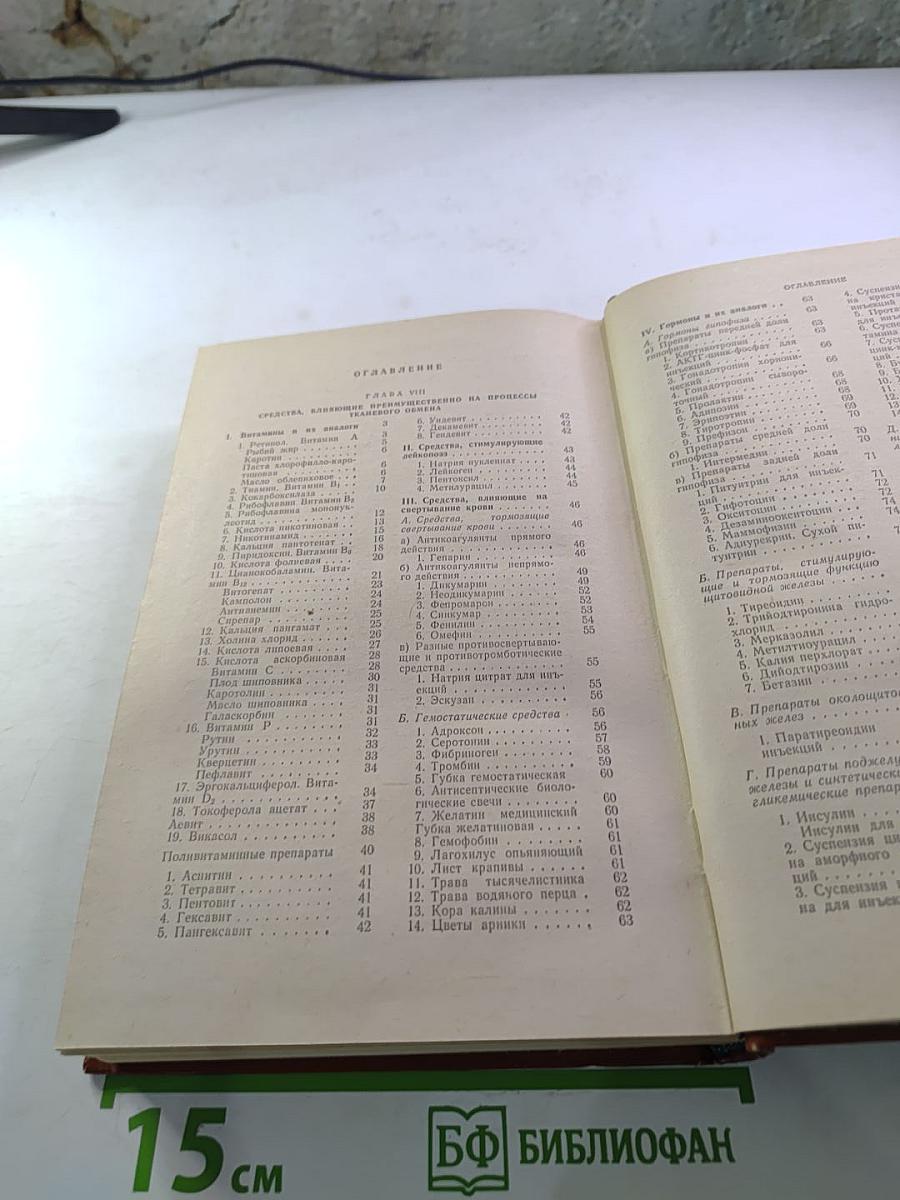 ОГЛАВЛЕНИЕ
ГЛАВА VIII
СРЕДСТВА, ВЛИЯЮЩИЕ ПРЕИМУЩЕСТВЕННО НА ПРОЦЕССЫ
ТКАНЕВОГО ОБМЕНА
I. Витамины и их аналоги 3
1. Ретинол. Витамин А 3
Рыбий жир . . . 5
Каротин . . . 6
Паста хлорофилло-каро-
тиновая . . . 6
Масло облепиховое . . . 6
2. Тиамин. Витамин B₁ . 7
3. Кокарбоксилаза . . . 10
4. Рибофлавин. Витамин B₂
5. Рибофлавина мононук-
леотид . . . 12
6. Кислота никотиновая . . 13
7. Никотинамид . . . 15
8. Кальция пантотенат . . 16
9. Пиридоксин. Витамин B₆ 18
10. Кислота фолиевая . . . 20
11. Цианокобаламин. Вита-
мин B₁₂ . . . 21
Витогепат . . . 23
Камполон . . . 24
Антианемин . . . 24
Сирепар . . . 25
12. Кальция пангамат . . . 25
13. Холина хлорид . . . 26
14. Кислота липоевая . . . 27
15. Кислота аскорбиновая 28
Витамин С . . . 28
Плод шиповника . . . 30
Каротолин . . . 31
Масло шиповника . . . 31
Галаскорбин . . . 31
16. Витамин Р . . . 31
Рутин . . . 32
Урутин . . . 33
Кверцетин . . . 33
Пефлавит . . . 34
17. Эргокальциферол. Вита-
мин D₂ . . . 34
18. Токоферола ацетат . . . 37
Аевит . . . 38
19. Викасол . . . 38
Поливитаминные препараты 40
1. Аснитин . . . 41
2. Тетравит . . . 41
3. Пентовит . . . 41
4. Гексавит . . . 41
5. Пангексавит . . . 42
6. Ундевит . . . 42
7. Декамевит . . . 42
8. Гендевит . . . 42
II. Средства, стимулирующие
лейкопоэз . . . 43
1. Натрия нуклеинат . . . 43
2. Лейкоген . . . 44
3. Пентоксил . . . 44
4. Метилурацил . . . 45
III. Средства, влияющие на
свертывание крови . . . 46
А. Средства, тормозящие
свертывание крови . . . 46
а) Антикоагулянты прямого
действия . . . 46
1. Гепарин . . . 46
б) Антикоагулянты непрямо-
го действия . . . 49
1. Дикумарин . . . 49
2. Неодикумарин . . . 52
3. Фепромарон . . . 52
4. Синкумар . . . 53
5. Фенилин . . . 54
6. Омефин . . . 55
в) Разные противосвертываю-
щие и противотромботические
средства . . . 55
1. Натрия цитрат для инъ-
екций . . . 55
2. Эскузан . . . 56
Б. Гемостатические средства . 56
1. Адроксон . . . 56
2. Серотонин . . . 57
3. Фибриноген . . . 58
4. Тромбин . . . 59
5. Губка гемостатическая 60
6. Антисептические биоло-
гические свечи . . . 60
7. Желатин медицинский 60
Губка желатиновая . . . 61
8. Гемофобин . . . 61
9. Лагохилус опьяняющий 61
10. Лист крапивы . . . 61
11. Трава тысячелистника 62
12. Трава водяного перца . 62
13. Кора калины . . . 62
14. Цветы арники . . . 63
ОГЛАВЛЕНИЕ
IV. Гормоны и их аналоги . . 63
А. Гормоны гипофиза . . . 63
а) Препараты передней доли
гипофиза . . . 63
1. Кортикотропин . . . 63
2. АКТГ-цинк-фосфат для
инъекций . . . 66
3. Гонадотропин хориони-
ческий . . . 66
4. Гонадотропин сыворо-
точный . . . 68
5. Пролактин . . . 68
6. Адипозин . . . 69
7. Эрипоэтин . . . 69
8. Тиротропин . . . 69
9. Префизон . . . 70
б) Препараты средней доли
гипофиза . . . 70
1. Интермедин . . . 70
в) Препараты задней доли
гипофиза . . . 71
1. Питуитрин для инъек-
ций . . . 71
2. Гифотоцин . . . 72
3. Окситоцин . . . 72
4. Дезаминоокситоцин . . 74
5. Маммофизин
6. Адиурекрин. Сухой пи-
туитрин
Б. Препараты, стимулирую-
щие и тормозящие функцию
щитовидной железы
1. Тиреоидин
2. Трийодтиронина гидро-
хлорид
3. Мерказолил
4. Метилтиоурацил
5. Калия перхлорат
6. Дийодтирозин
7. Бетазин
В. Препараты околощито
ных желез
1. Паратиреоидин
инъекций
Г. Препараты поджелу
железы и синтетическ
гликемические препар
1. Инсулин
Инсулин для
2. Суспензия ц
на аморфного
ций
3. Суспензия
на для инъек
4. Суспенз
на крист
инъекций
5. Прота
для ин
6. Сусп
тамина
7. Сус
цинк-
ций
15 см
БФ БИБЛИОФАН